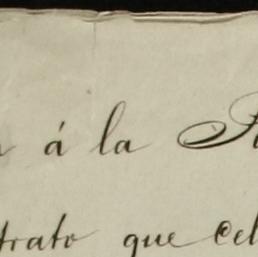 á la
trato que cel